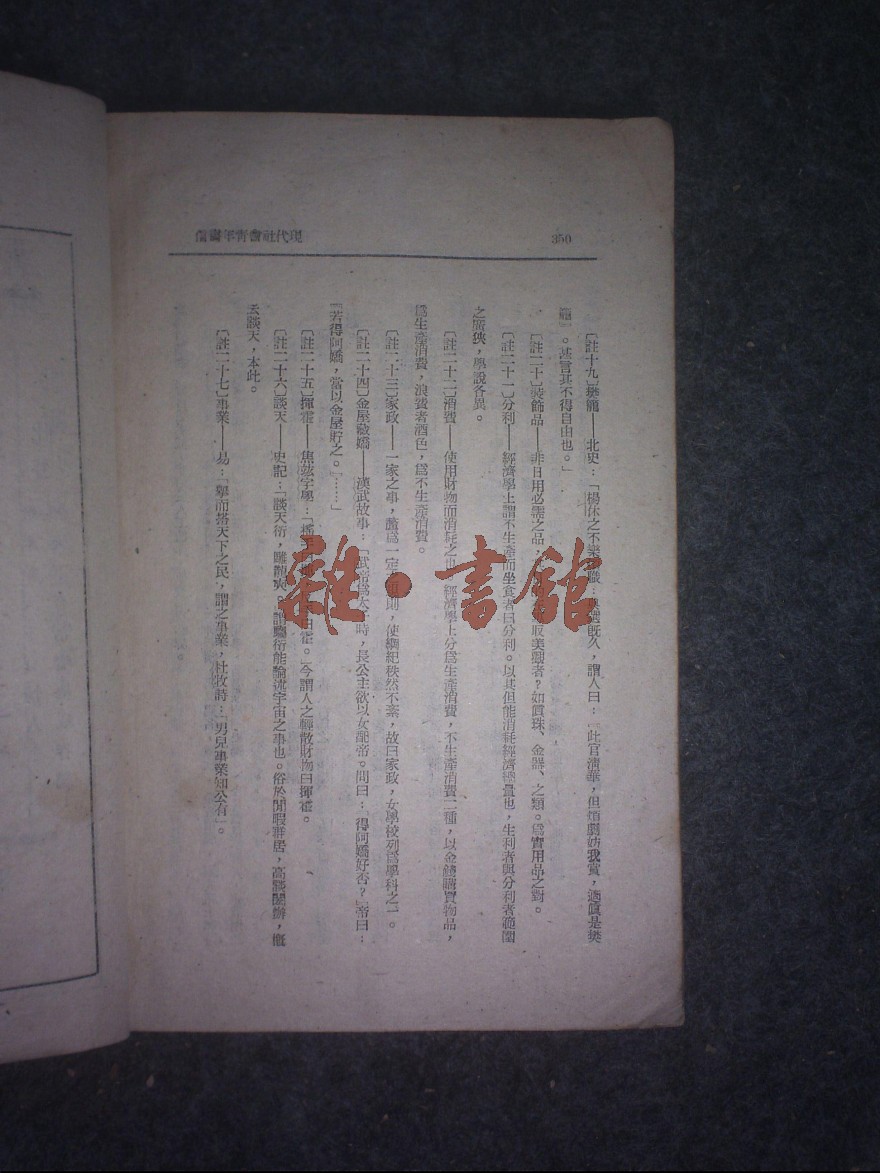 350
現代社會青年書信
〔註十九〕樊籠——北史：「楊休之不樂 職 既久，謂人曰：『此官清華，但煩劇妨我賞，適真是樊
籠』。甚言其不得自由也。」
〔註二十〕裝飾品——非日用必需之品， 取美觀者？如真珠、金器、之類。為實用品之對。
〔註二十一〕分利——經濟學上謂不生產而坐食者曰分利。以其但能消耗經濟總量也，生利者與分利者範圍
之廣狹，學說各異。
〔註二十二〕消費——使用財物而消耗之也 經濟學上分為生產消費，不生產消費二種，以金錢購買物品，
為生產消費，浪費者酒色，為不生產消費。
〔註二十三〕家政——一家之事，釐為一定 則，使綱紀秩然不紊，故曰家政，女學校列為學科之一。
〔註二十四〕金屋藏嬌——漢武故事：「武帝為太子時，長公主欲以女配帝。問曰：『得阿嬌好否？』帝曰：
『若得阿嬌，當以金屋貯之。』……」
〔註二十五〕揮霍——焦竑字學：「搖手 曰霍。」今謂人之輕散財物曰揮霍。
〔註二十六〕談天——史記：「談天衍，雕龍奭。」謂騶衍能論述宇宙之事也。俗於閒暇群居，高談闊辯，概
云談天，本此。
〔註二十七〕事業——易：「舉而措天下之民，謂之事業，杜牧詩：「男兒事業知公有」。
雜·書館